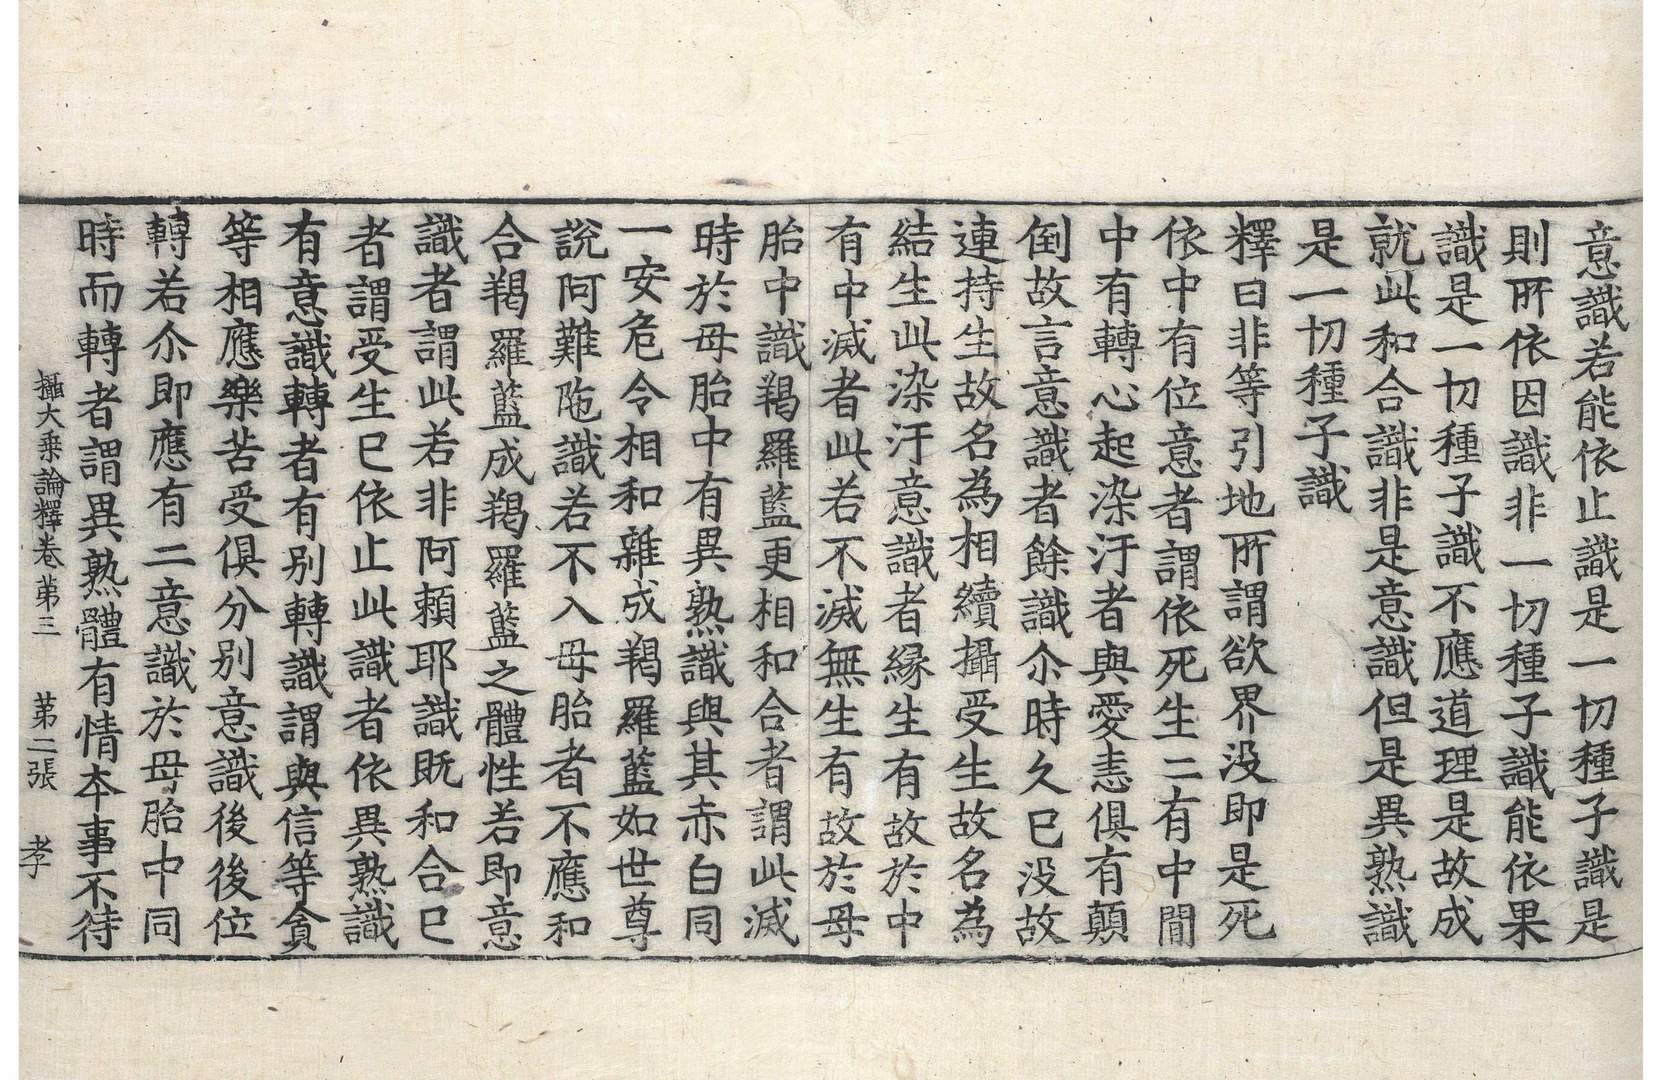 意識若能依止識是一切種子識是
則所依因識非一切種子識能依果
識是一切種子識不應道理是故成
就此和合識非是意識但是異熟識
是一切種子識
釋曰非等引地所謂欲界没即是死
依中有位意者謂依死生二有中閒
中有轉心起染汙者與愛恚俱有顛
倒故言意識者餘識尒時久已没故
連持生故名為相續攝受生故名為
結生此染汙意識者縁生有故於中
有中滅者此若不滅無生有故於母
胎中識羯羅藍更相和合者謂此滅
時於母胎中有異熟識與其赤白同
一安危令相和雜成羯羅藍如世尊
說阿難陁識若不入母胎者不應和
合羯羅藍成羯羅藍之體性若即意
識者謂此若非阿頼耶識既和合已
者謂受生已依止此識者依異熟識
有意識轉者有别轉識謂與信等貪
等相應樂苦受俱分别意識後後位
轉若尒即應有二意識於母胎中同
時而轉者謂異熟體有情夲事不待
攝大乗論釋卷苐三　苐二張　孝